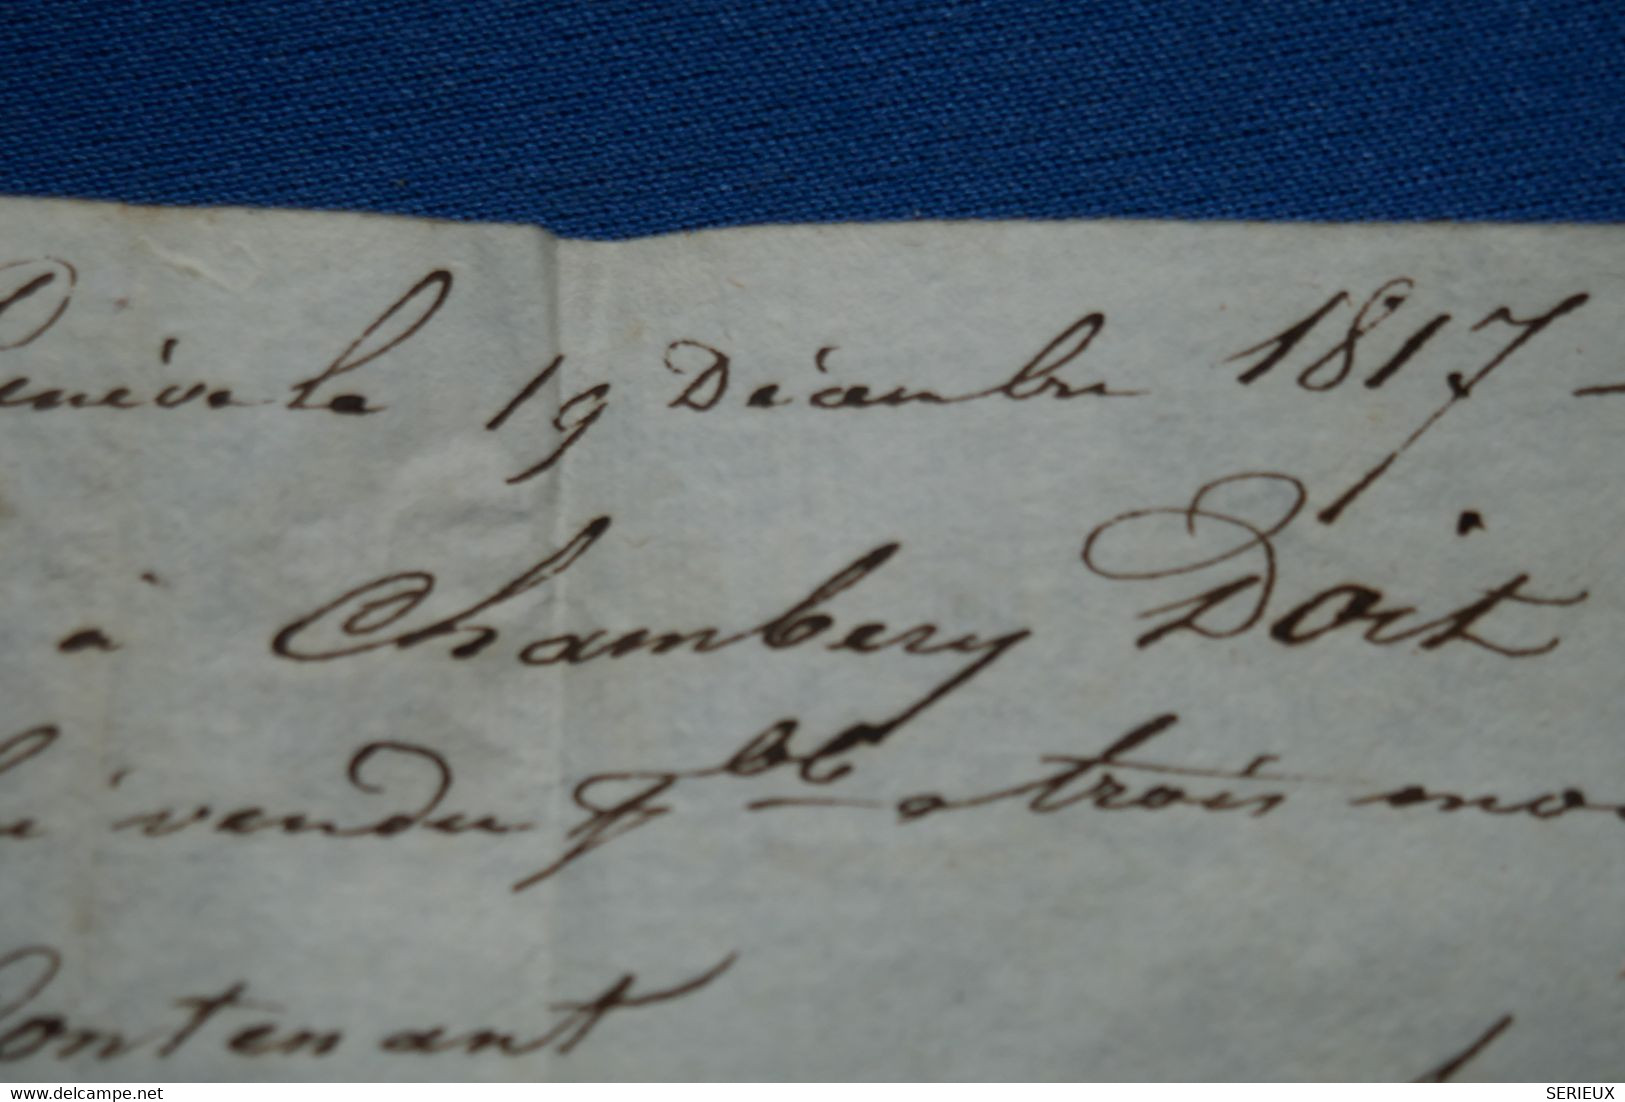 Genève le 19 Décembre 1817 –
à Chambery Doit
vendu trois
Contenant
www.delcampe.net
SERIEUX